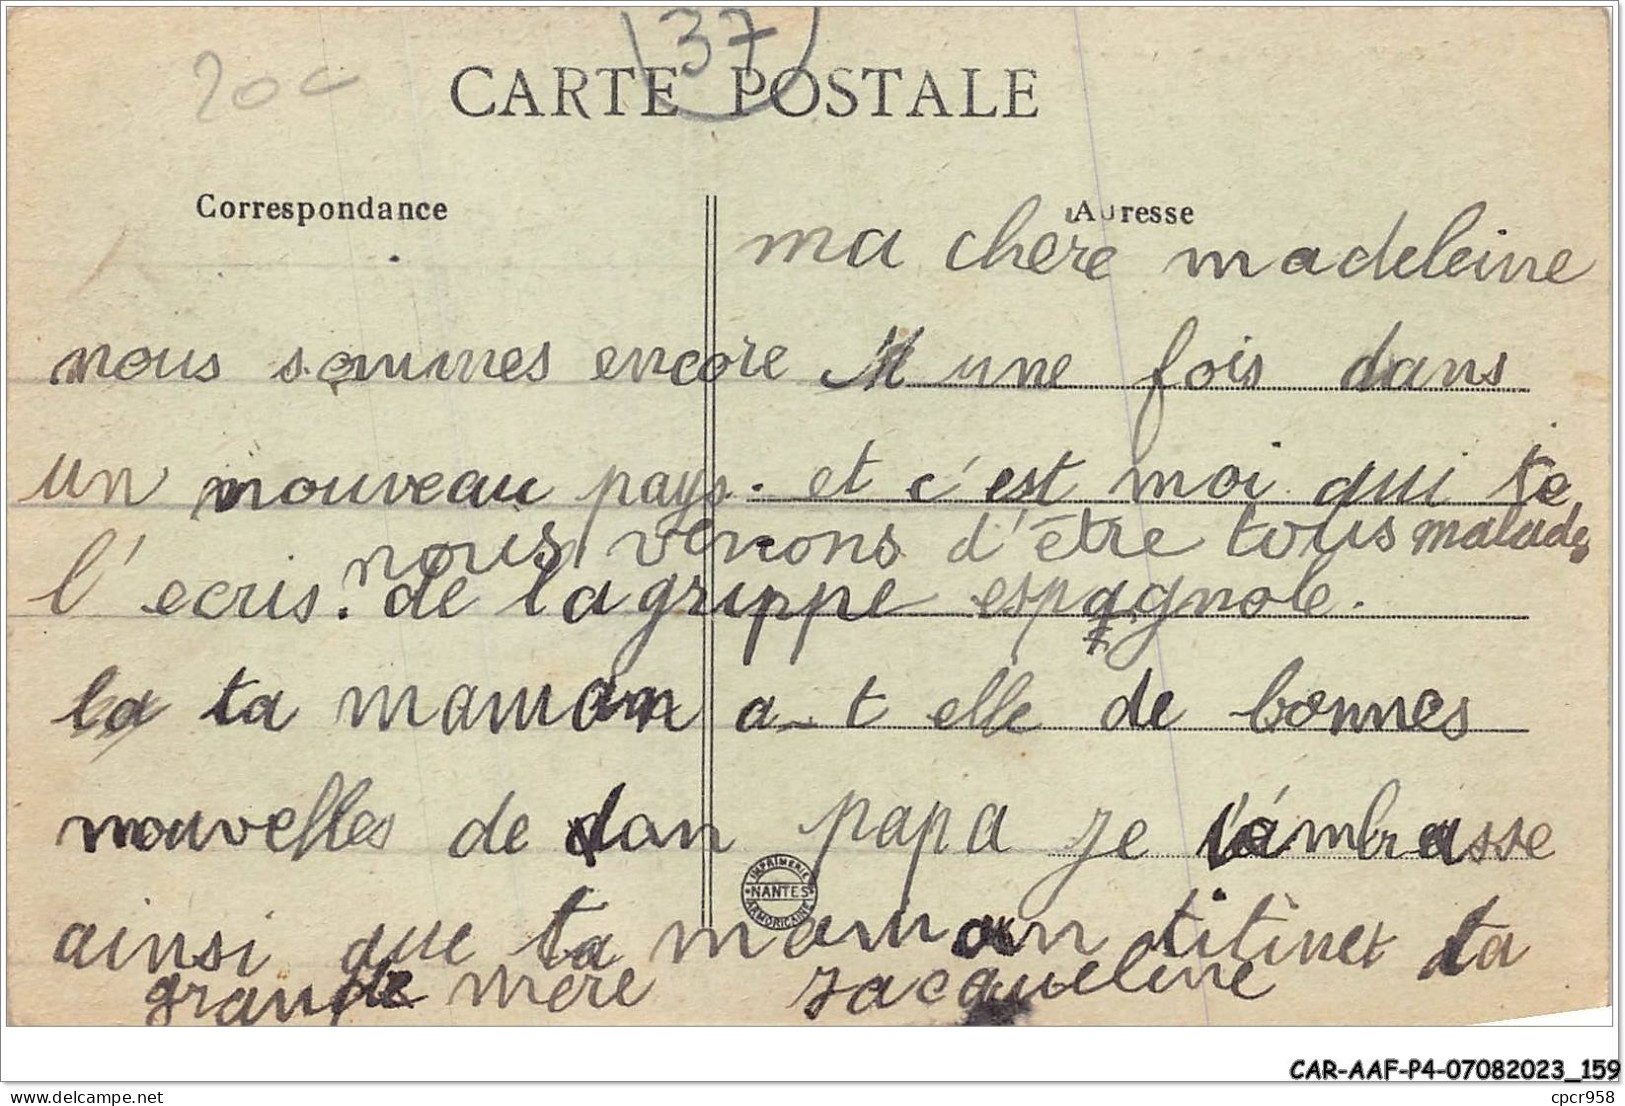 37
20c
CARTE POSTALE
Correspondance
Adresse
ma chere madeleine
nous sommes encore une fois dans
un nouveau pays. et c'est moi qui te
l'ecris. nous venons d'être tous malades
de la grippe espagnole.
ta maman a-t elle de bonnes
nouvelles de ton papa je t'émbrasse
IMPRIMERIE NANTES ARMORICAINE
ainsi que ta maman titine et ta
grande mère Jacqueline
CAR-AAF-P4-07082023_159
cpcr958